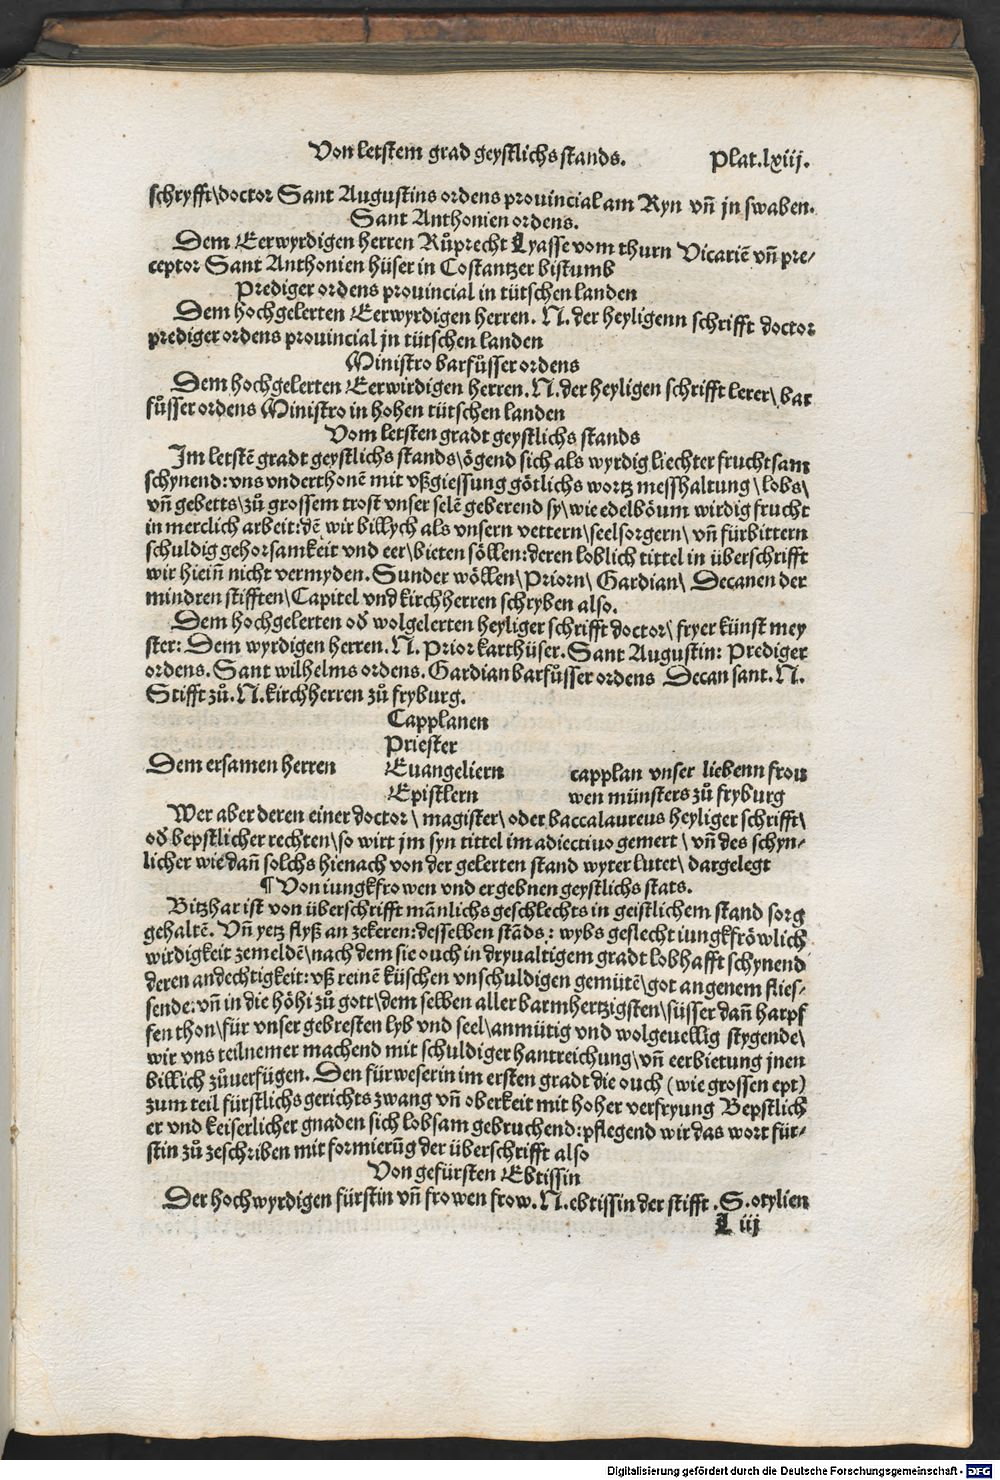 Von letstem grad geystlichs stands. Plat.lxiij.
schryfft\doctor Sant Augustins ordens prouincial am Ryn vñ jn swaben.
Sant Anthonien ordens.
Dem Eerwyrdigen herren Růprecht Lyasse vom thurn Vicariẽ vñ pre⸗
ceptor Sant Anthonien hüser in Costantzer bistumb
Prediger ordens prouincial in tütschen landen
Dem hochgelerten Eerwyrdigen herren. N. der heyligenn schrifft doctor
prediger ordens prouincial jn tütschen landen
Ministro barfůsser ordens
Dem hochgelerten Eerwirdigen herren. N. der heyligen schrifft lerer\ bar
fůsser ordens Ministro in hohen tütschen landen
Vom letsten gradt geystlichs stands
Im letstẽ gradt geystlichs stands\ögend sich als wyrdig liechter fruchtsam
schynend:vns vnderthonẽ mit vßgiessung götlichs wortz messhaltung\lobs\
vñ gebetts\zů grossem trost vnser selẽ geberend sy\wie edelböum wirdig frucht
in merclich arbeit:dẽ wir billych als vnsern vettern\seelsorgern\ vñ fürbittern
schuldig gehorsamkeit vnd eer\bieten söllen:deren loblich tittel in überschrifft
wir hieiñ nicht vermyden. Sunder wöllen\Priorn\ Gardian\ Decanen der
mindren stifften\Capitel vnd kirchherren schryben also.
Dem hochgelerten oď wolgelerten heyliger schrifft doctor\ fryer künst mey
ster: Dem wyrdigen herren. N. Prior karthüser. Sant Augustin: Prediger
ordens. Sant wilhelms ordens. Gardian barfůsser ordens Decan sant. N.
Stifft zů. N. kirchherren zů fryburg.
Capplanen
Priester
Dem ersamen herren Euangeliern capplan vnser liebenn frou
Epistlern wen münsters zů fryburg
Wer aber deren einer doctor\ magister\ oder baccalaureus heyliger schrifft\
oď bepstlicher rechten\so wirt jm syn tittel im adiectiuo gemert\ vñ des schyn⸗
licher wie dañ solchs hienach von der gelerten stand wyter lutet\ dargelegt
¶ Von iungkfrowen vnd ergebnen geystlichs stats.
Bitzhar ist von überschrifft mãnlichs geschlechts in geistlichem stand sorg
gehaltẽ. Vñ yetz flyß an zekeren:desselben stãds: wybs geslecht iungkfröwlich
wirdigkeit zemeldẽ\nach dem sie ouch in dryualtigem gradt lobhafft schynend
deren andechtigkeit:vß reinẽ küschen vnschuldigen gemütẽ\got angenem flies⸗
sende:vñ in die höhi zů gott\dem selben aller barmhertzigsten\süsser dañ harpf
fen thon\für vnser gebresten lyb vnd seel\anmütig vnd wolgeuellig stygende\
wir vns teilnemer machend mit schuldiger hantreichung\vñ eerbietung jnen
billich zůuerfügen. Den fürweserin im ersten gradt die ouch (wie grossen ept)
zum teil fürstlichs gerichts zwang vñ oberkeit mit hoher verfryung Bepstlich
er vnd keiserlicher gnaden sich lobsam gebruchend:pflegend wir das wort für⸗
stin zů zeschriben mit formierũg der überschrifft also
Von gefürsten Ebtissin
Der hochwyrdigen fürstin vñ frowen frow. N. ebtissin der stifft .S. otylien
L iij
Digitalisierung gefördert durch die Deutsche Forschungsgemeinschaft - DFG